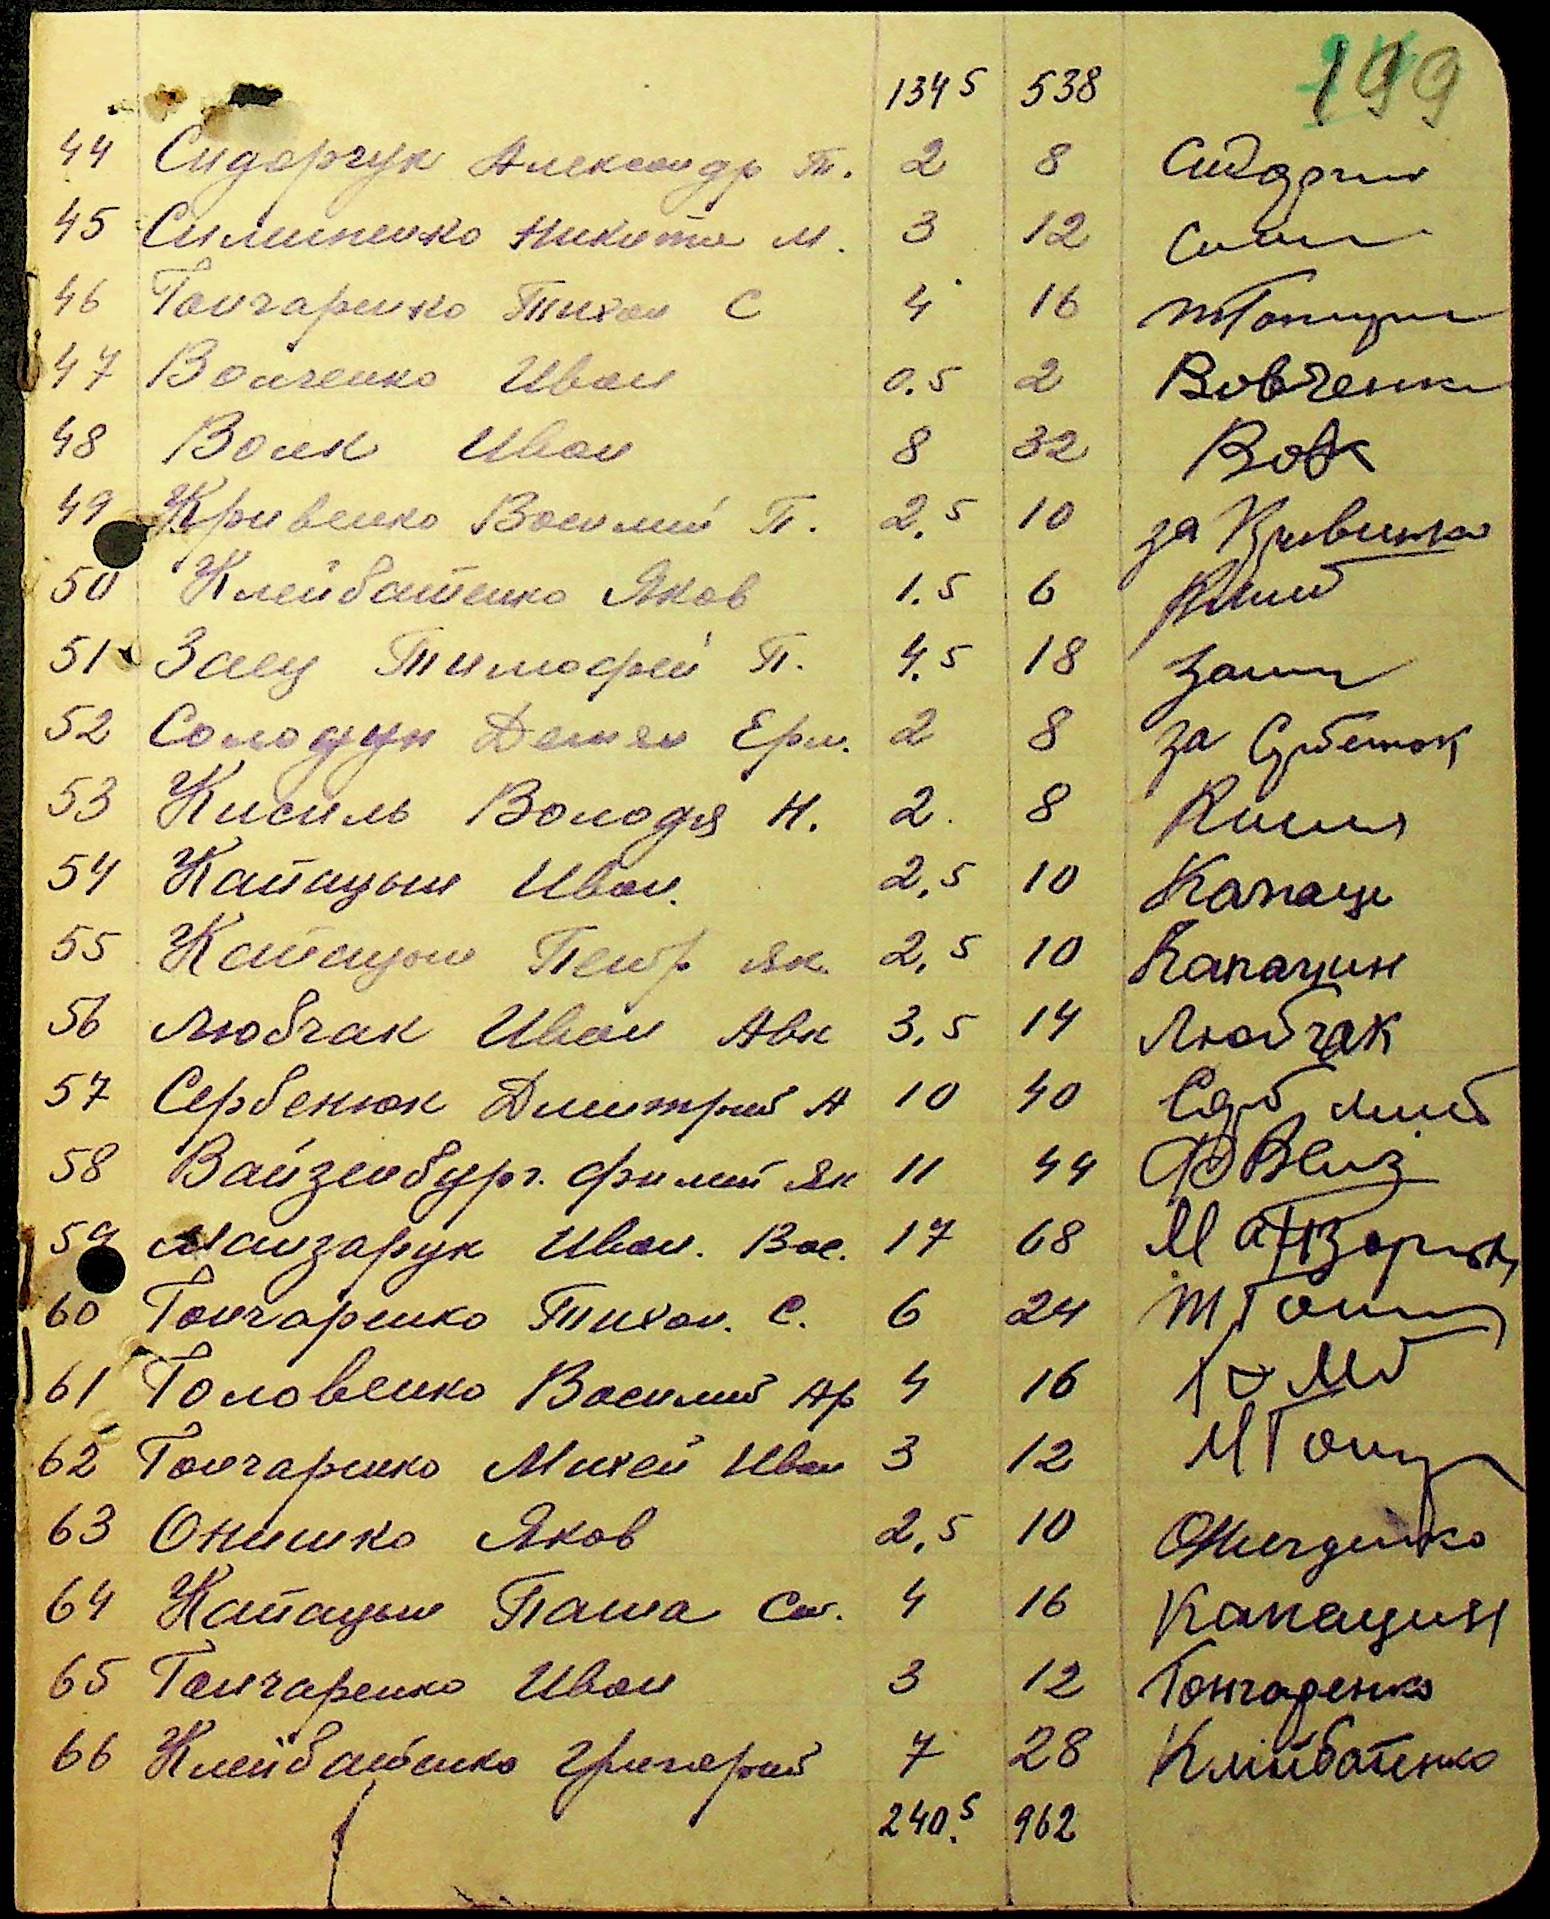 199
134 5 538
44 Сидорчук Александр Т. 2 8 Сидорчук
45 Симиненко Никита М. 3 12
46 Гончаренко Тихон С 4 16 ТГончар
47 Волченко Иван 0.5 2 Вовченк
48 Волк Иван 8 32 Вовк
49 Кривенко Василий П. 2.5 10 за Кривенко
50 Клейбатенко Яков 1.5 6
51 Заец Тимофей П. 4.5 18 Заец
52 Солодун Демян Ерм. 2 8 за Сербенюк
53 Кисиль Володя Н. 2. 8 Кисил
54 Капацын Иван. 2,5 10 Капаци
55 Капацын Петр Як. 2,5 10 Капацин
56 Любчак Иван Авк 3,5 14 Любчак
57 Сербенюк Дмитрий А 10 40
58 Вайзенбург. Филип Як 11 44 ФВейз
59 Манзарук Иван. Вас. 17 68 Манзарук
60 Гончаренко Тихон. С. 6 24 ТГонч
61 Головенко Василий Ар 4 16
62 Гончаренко Михей Иван 3 12 МГонч
63 Онишко Яков 2,5 10
64 Капацын Паша Ст. 4 16 Капацин
65 Гончаренко Иван 3 12 Гончаренко
66 Клейбатенко Григорий 7 28 Клийбатенко
240.5 962